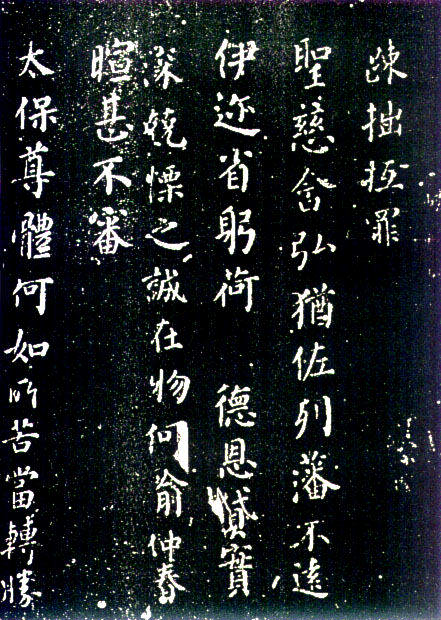 疎拙抵罪
聖慈含弘猶佐列藩不遠
伊迩省躬荷 德恩貸實
深兢慄之誠在物何喻仲春
暄甚不審
太保尊體何如所苦當轉勝